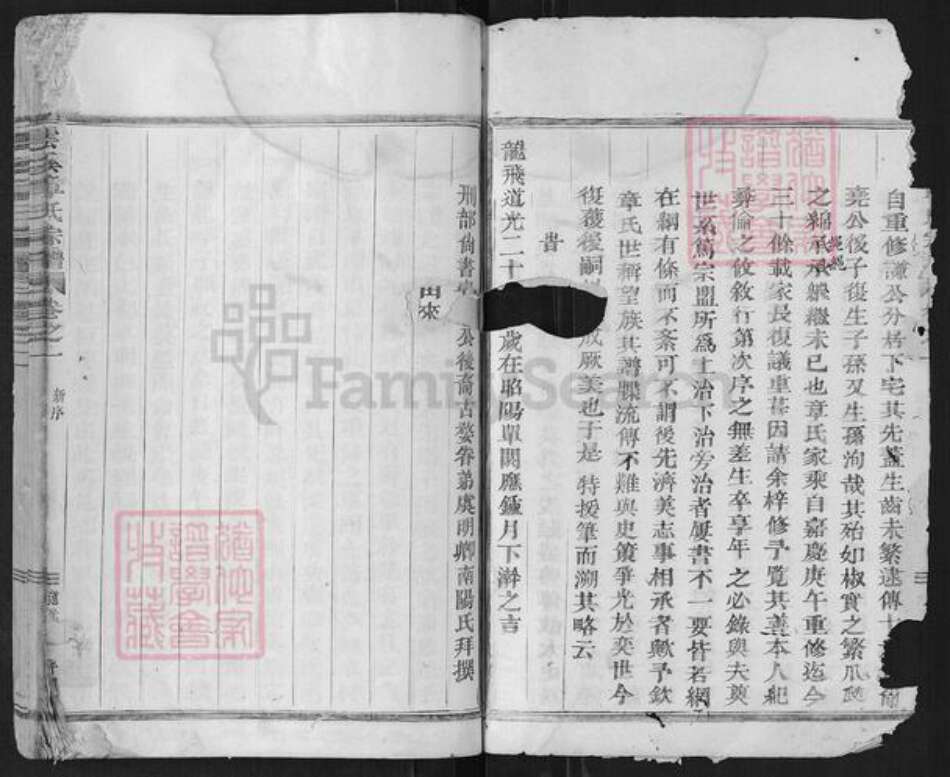 自重修謙公分居下宅其先蓋生齒未繁迨傳十
堯公後子復生子孫又生孫洵哉其殆如椒實之繁瓜瓞
之綿承承繩繩繼未已也章氏家乘自嘉慶庚午重修迄今
三十餘載家長復議重葺因請余梓修予覽其善本人紀
彝倫之攸敘行第次序之無差生卒享年之必錄與夫奠
世系篤宗盟所為上治下治旁治者屢書不一要皆若網
在綱有條而不紊可不謂後先濟美志事相承者歟予欽
章氏世稱望族其譜牒流傳不難與史策爭光於奕世今
復獲後嗣 成厥美也于是特援筆而溯其略云
旹
龍飛道光二十 歲在昭陽單閼應鐘月下澣之吉
刑部尚書 公後裔古婺眷弟虞明卿南陽氏拜撰
章氏宗譜 卷之一
新序
FamilySearch
猶他家譜學會收藏
猶他家譜學會收藏